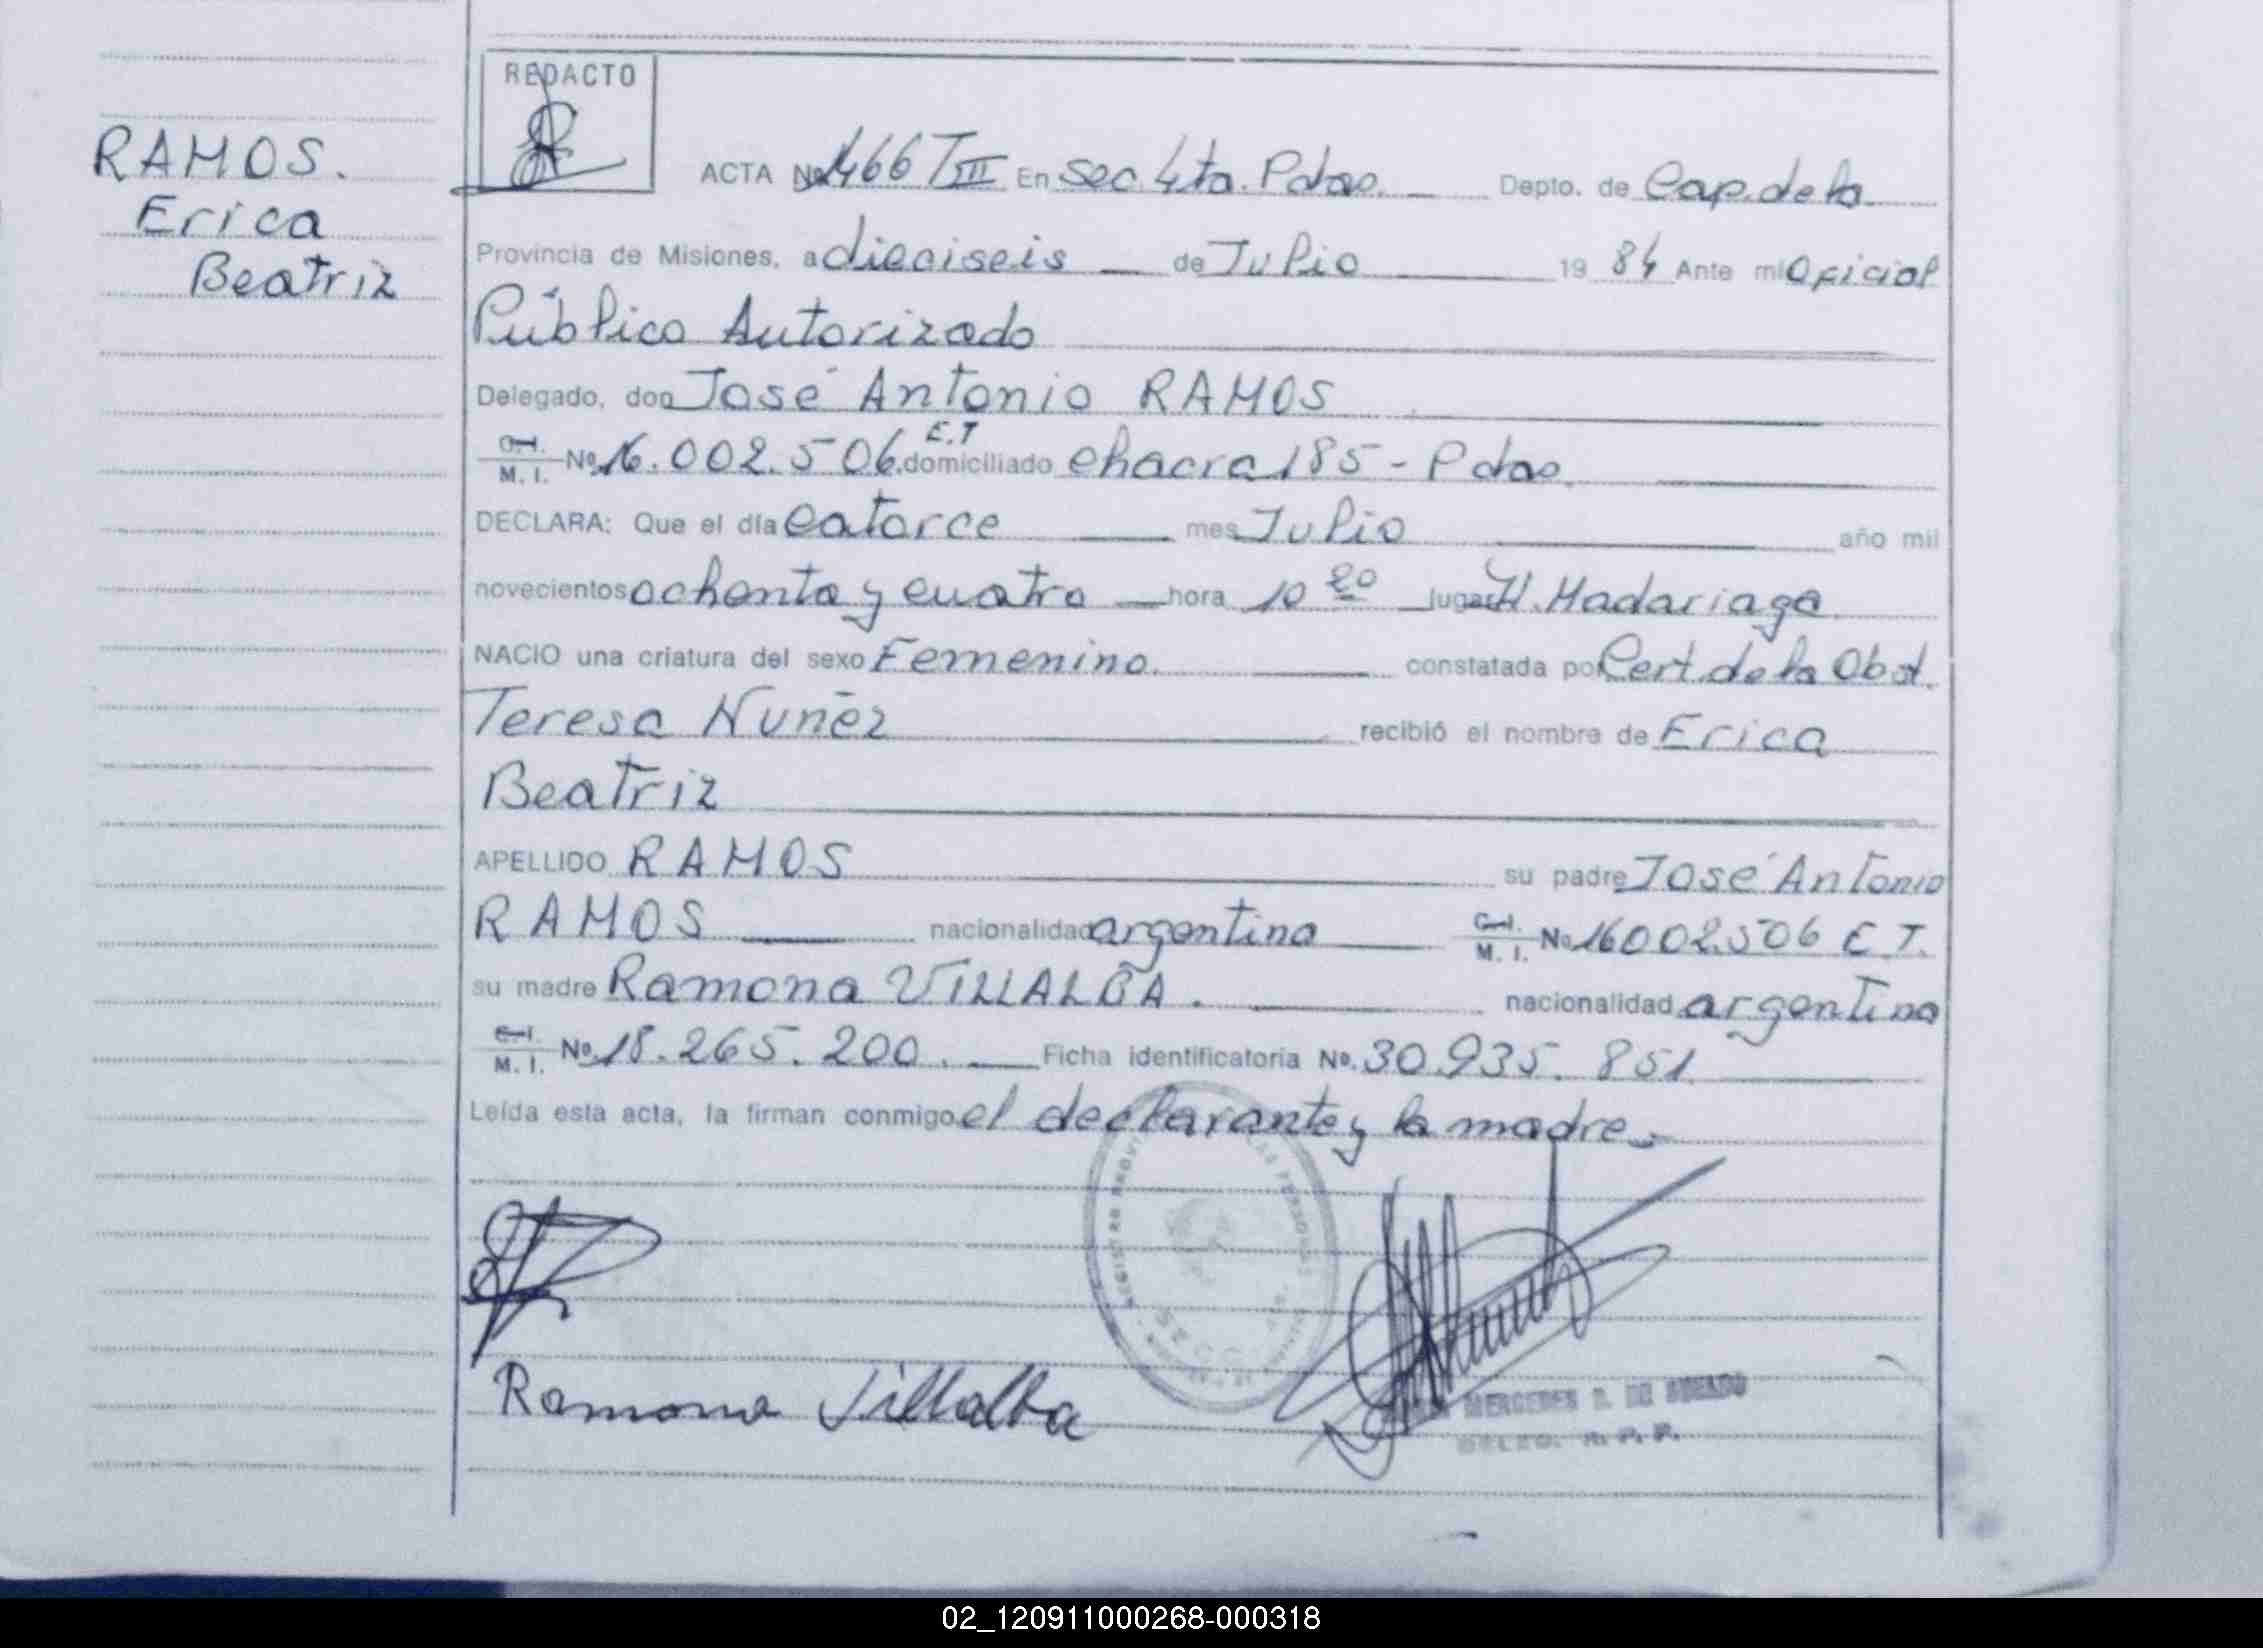 REDACTO
RAMOS.
Erica
Beatriz
ACTA No 466 TIII En sec. 4ta. Pdas. Depto. de Cap. de la
Provincia de Misiones, a dieciseis de Julio 19 84 Ante mi Oficial
Público Autorizado
Delegado, don José Antonio RAMOS
C.I. M. I. No. 16.002.506. E.T domiciliado chacra 185 - Pdas.
DECLARA: Que el día catorce mes Julio año mil
novecientos ochenta y cuatro hora 10 20 lugar H. Madariaga
NACIO una criatura del sexo Femenino. constatada por Cert. de la Obst.
Teresa Nuñez recibió el nombre de Erica
Beatriz
APELLIDO RAMOS su padre José Antonio
RAMOS nacionalidad argentina C.I. M. I. No. 16002.506 E.T.
su madre Ramona VILLALBA. nacionalidad argentina
C.I. M. I. No. 18.265.200. Ficha identificatoria No. 30.935.851
Leída esta acta, la firman conmigo el declarante y la madre
Ramona Villalba
MERCEDES
DELEG. R. P. P.
02_120911000268-000318